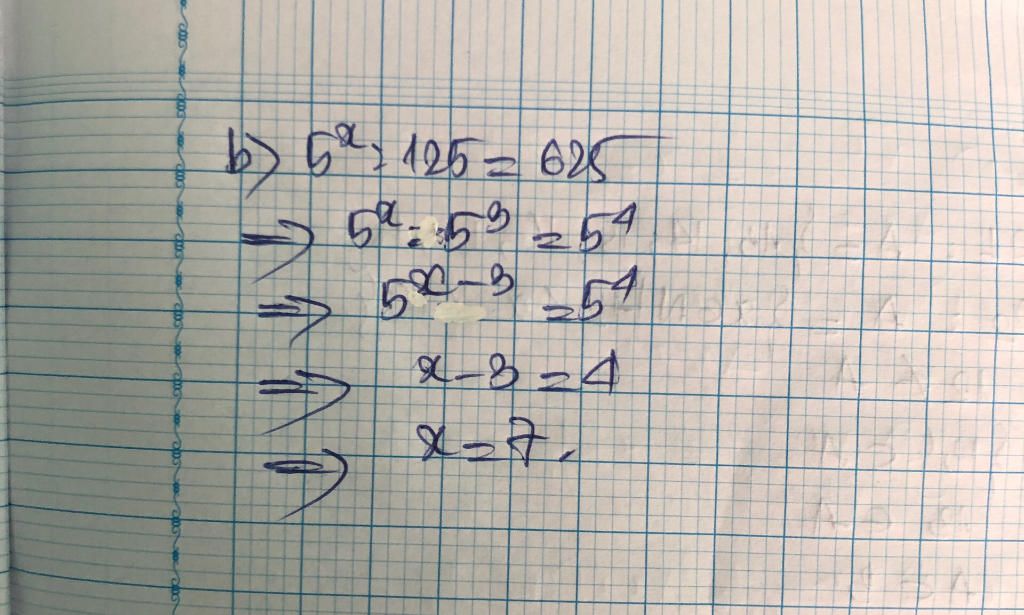 b) 5^x : 125 = 625
=> 5^x : 5^3 = 5^4
=> 5^x-3 = 5^4
=> x - 3 = 4
=> x = 7.